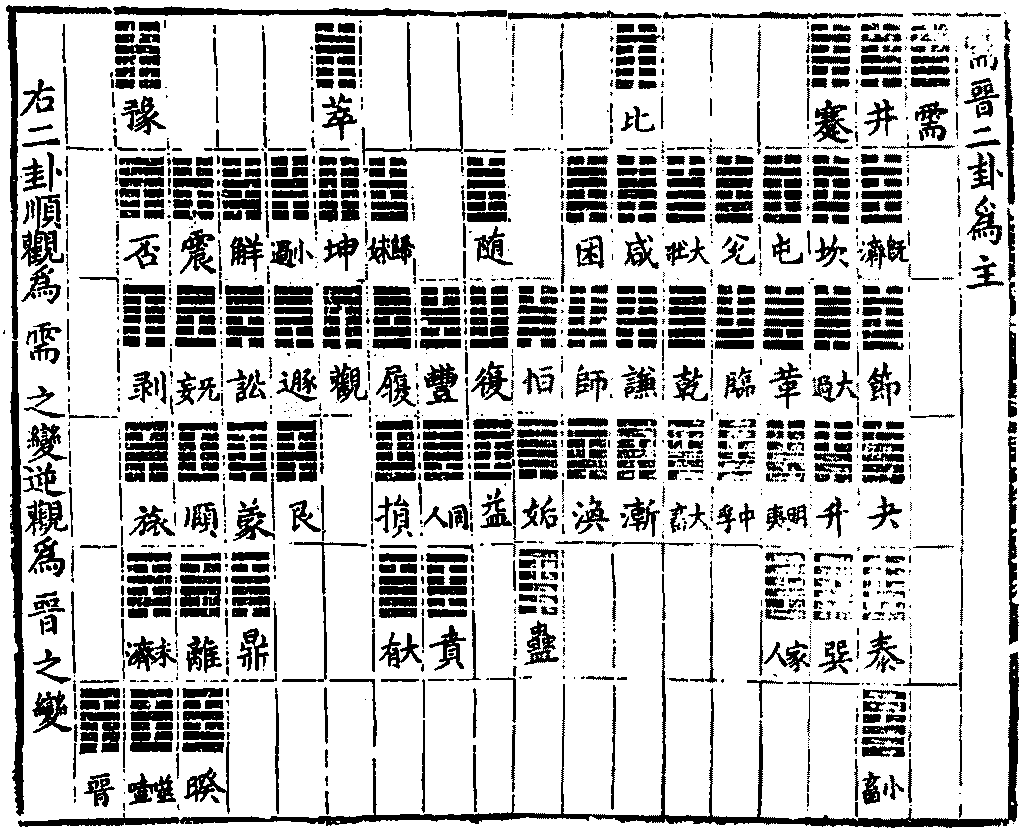 需晉二卦爲主
需
井
既濟
節
夬
泰
小畜
蹇
坎
大過
升
巽
屯
革
明夷
家人
兌
臨
中孚
大壯
乾
大畜
比
咸
謙
漸
困
師
渙
恒
姤
蠱
随
復
益
豐
同人
賁
歸妹
履
損
大有
萃
坤
觀
小過
遯
艮
解
訟
蒙
鼎
震
无妄
頤
離
睽
豫
否
剥
旅
未濟
噬嗑
晉
右二卦順觀爲需之變逆觀爲晉之變